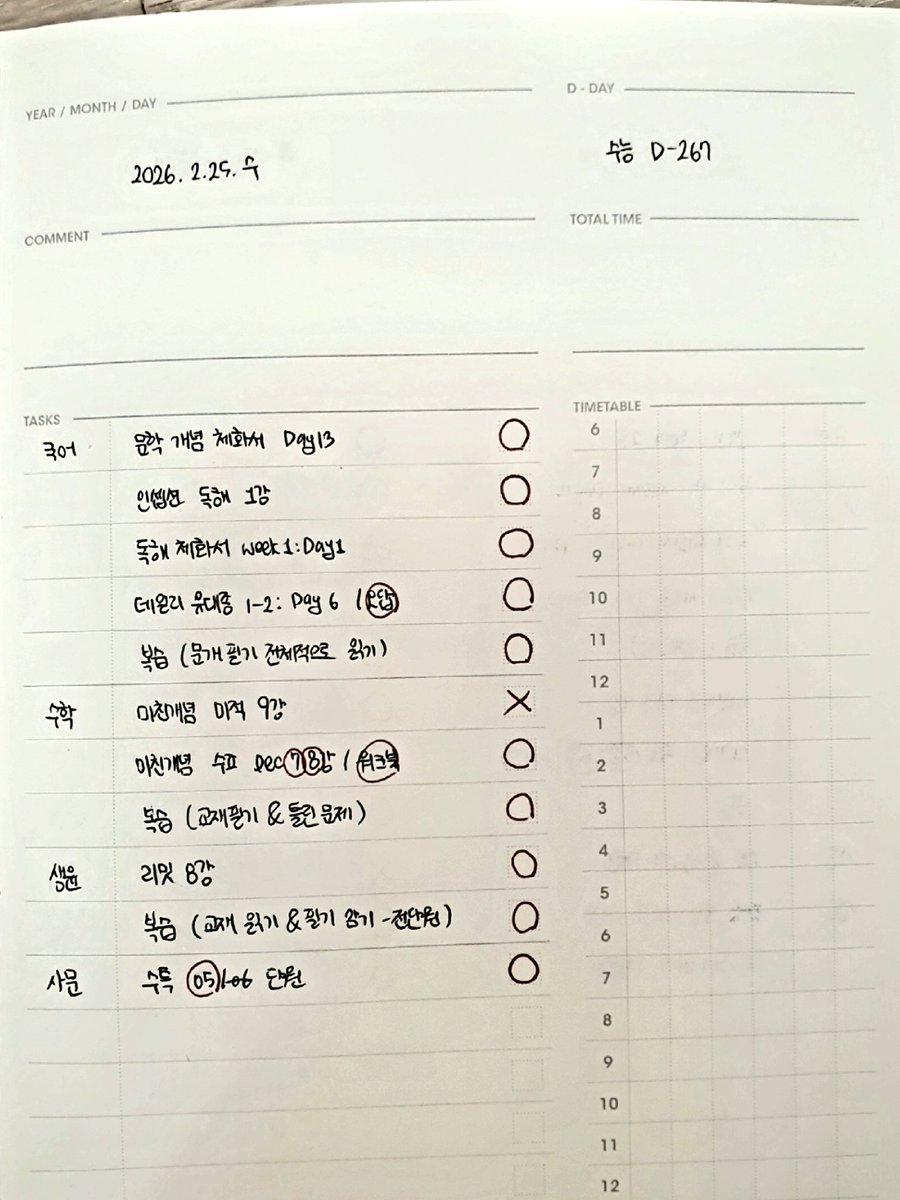 YEAR / MONTH / DAY
D - DAY
2026. 2. 25. 수
수능 D-267
COMMENT
TOTAL TIME
TASKS
TIMETABLE
국어 문학 개념 체화서 Day13 O
인셉션 독해 1강 O
독해 체화서 week1: Day1 O
데일리 유대종 1-2: Day 6 / 오답 O
복습 (문개 필기 전체적으로 읽기) O
수학 미친개념 미적 9강 X
미친개념 수II Dec 7 8강 / 워크북 O
복습 (교재필기 & 틀린문제) O
생윤 리밋 8강 O
복습 (교재 읽기 & 필기 암기 - 전단원) O
사문 수특 05 1-06 단원 O
6
7
8
9
10
11
12
1
2
3
4
5
6
7
8
9
10
11
12